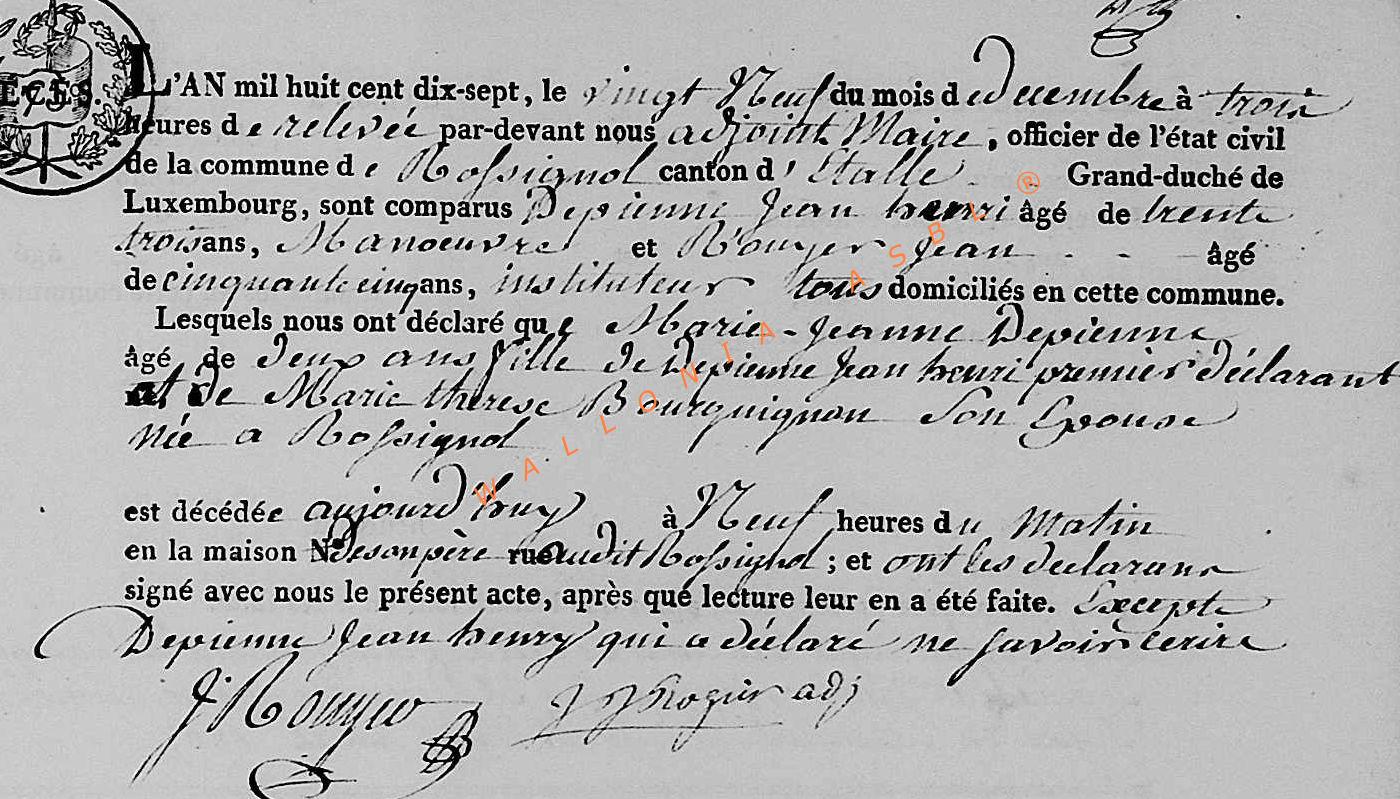 L'AN mil huit cent dix-sept, le vingt Neuf du mois de decembre à trois
heures de relevée par-devant nous adjoint Maire, officier de l'état civil
de la commune de Rossignol canton d'Etalle Grand-duché de
Luxembourg, sont comparus Depienne Jean henri âgé de trente
trois ans, Manoeuvre et Rouyer Jean âgé
de cinquante cinq ans, instituteur tous domiciliés en cette commune.
Lesquels nous ont déclaré que Marie-Jeanne Depienne
âgé de deux ans fille de Depienne Jean henri premier déclarant
et de Marie therese Bourguignon Son Epouse
née a Rossignol
est décédée aujourd'huy à Neuf heures du Matin
en la maison N° de son père rue audit Rossignol ; et ont les declarans
signé avec nous le présent acte, après que lecture leur en a été faite. Excepte
Depienne Jean henry qui a déclaré ne savoir ecrire
J Rouyer J J Rogier adj
WALLONIA ASBL ®